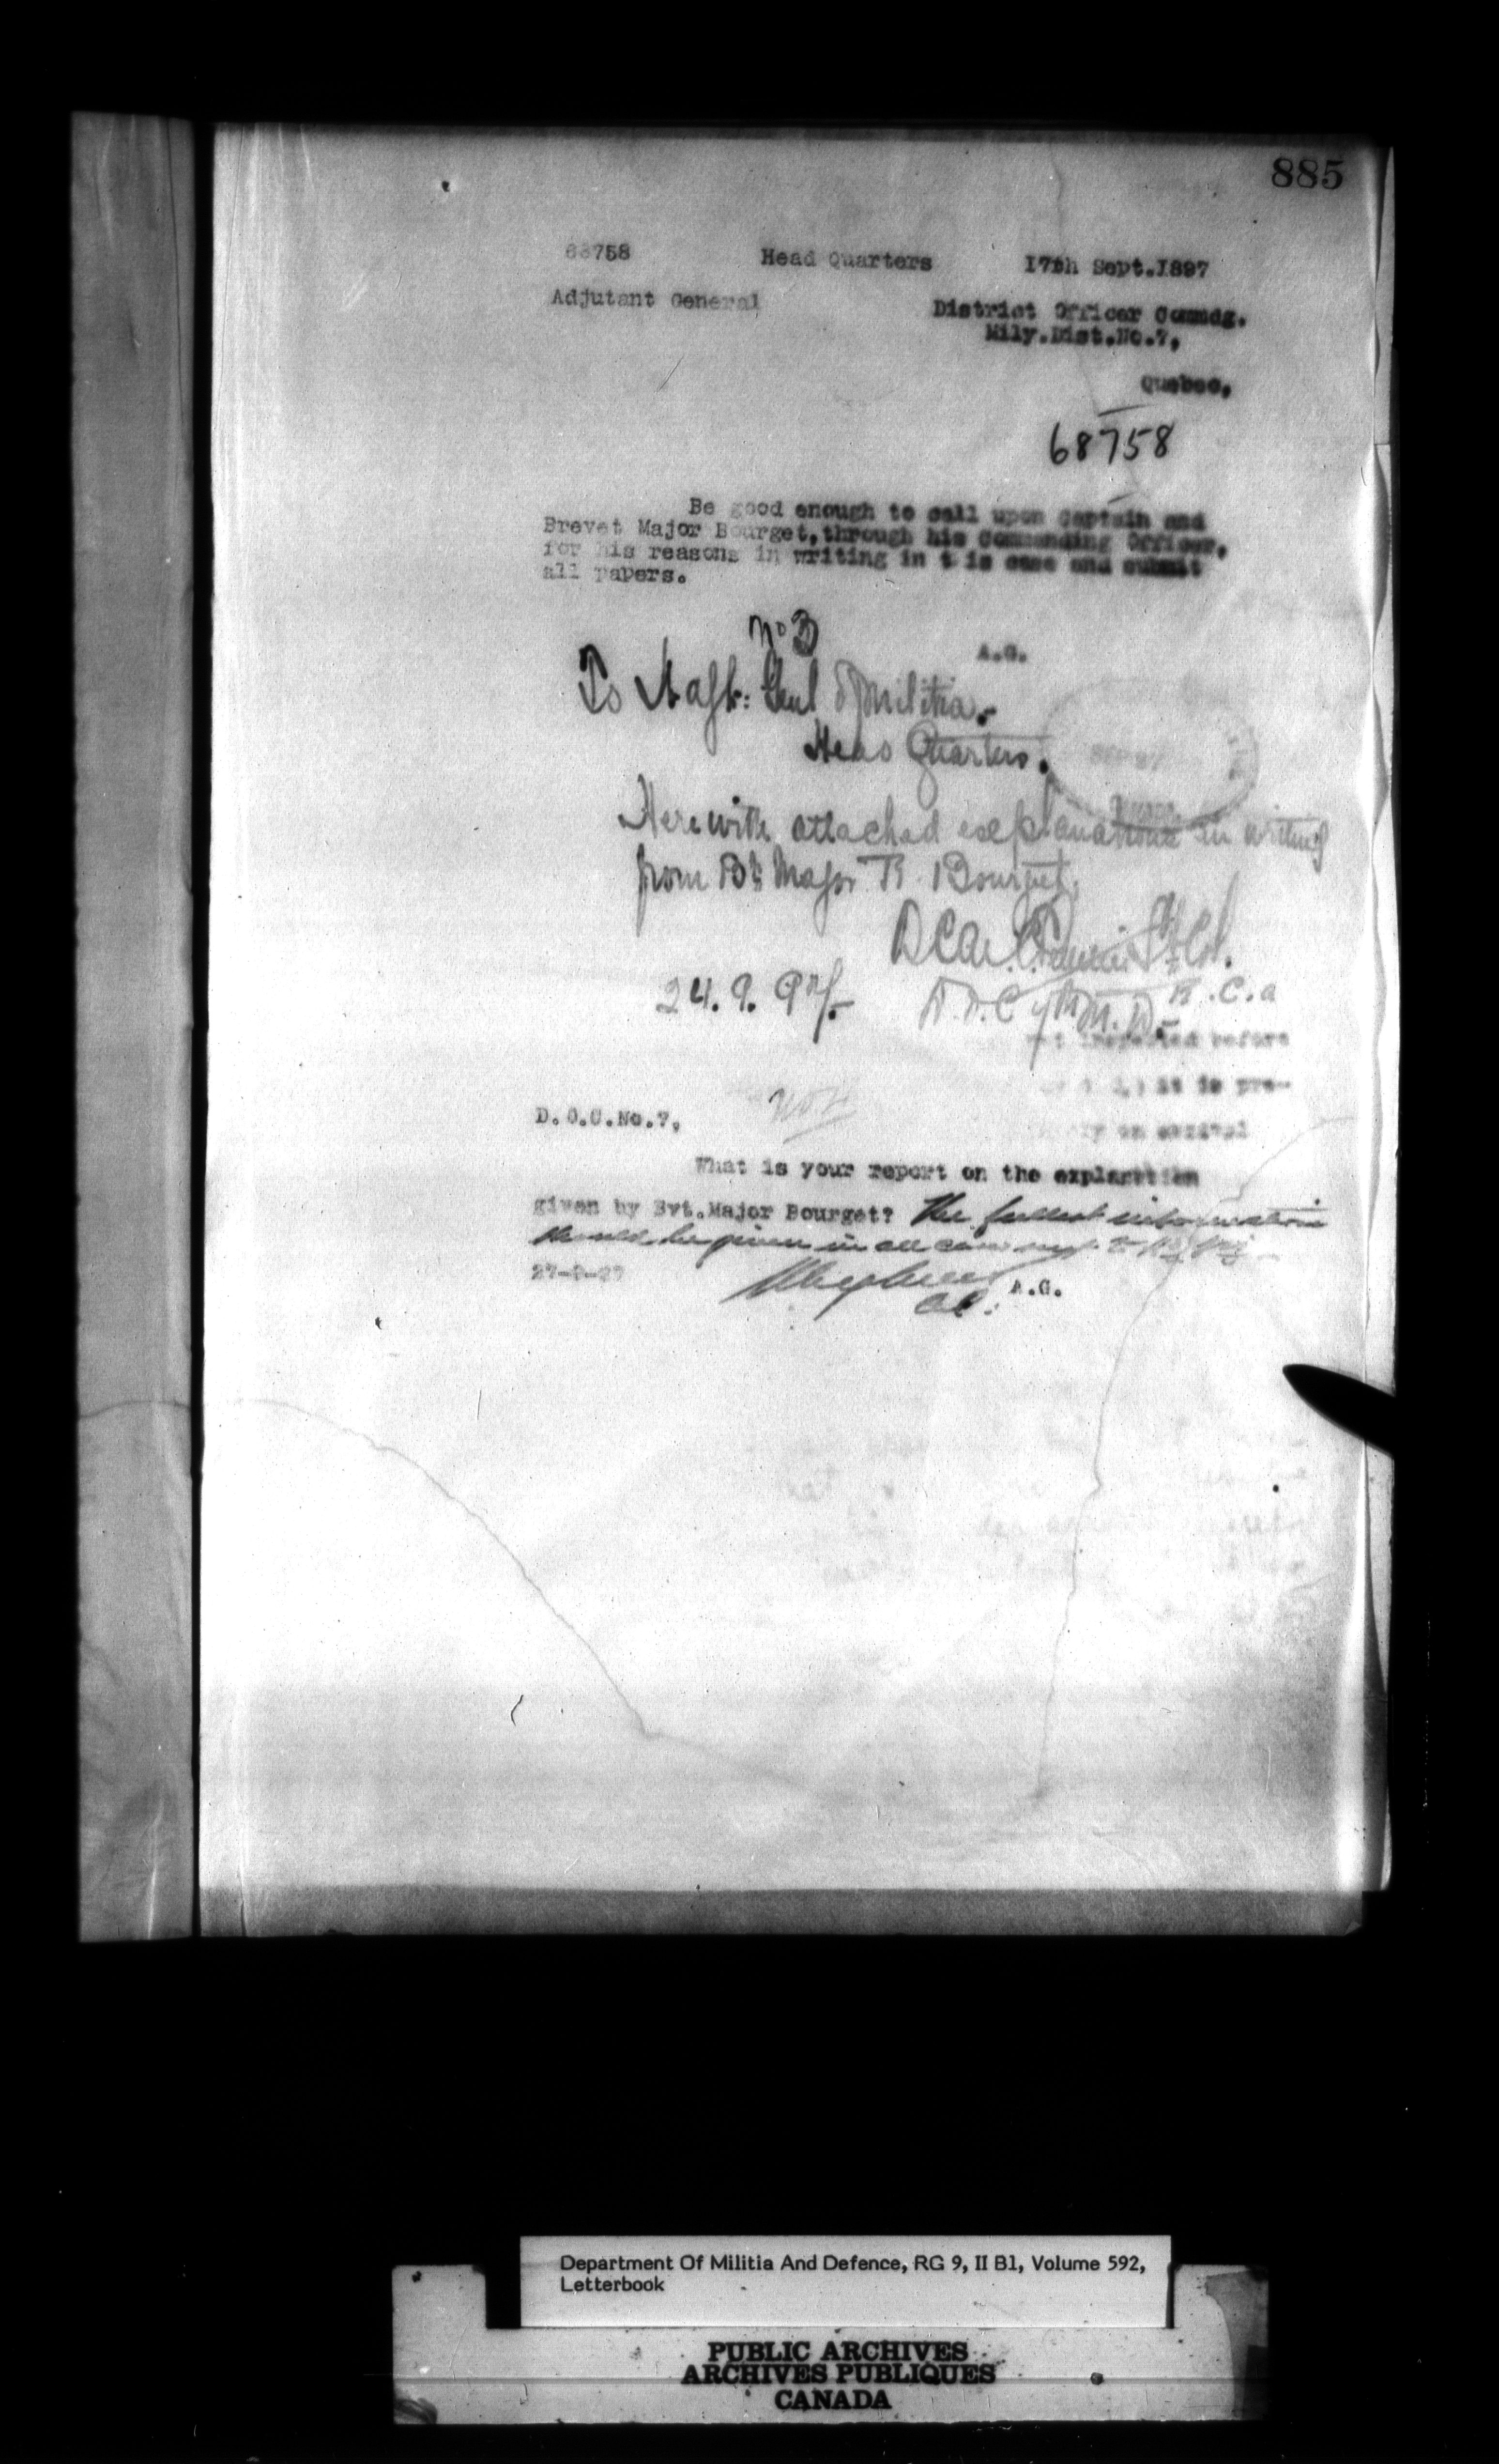 885
68758 Head Quarters 17th Sept.1897
Adjutant General
District Officer Commdg.
Mily.Dist.No.7,
Quebec,
68758
Be good enough to call upon Captain and
Brevet Major Bourget,through his Commanding Officer,
for his reasons in writing in t is case and submit
all papers.
A.G.
No 3
To Genl of Militia.
Head Quarters.
Herewith attached explanations in writing
from Bt Major R. Bourget.
Lt Col.
24.9.97. D.O.C 7th M.D. R.C.A
inspected before
it is pre-
on
No.4
D.O.C.No.7,
What is your report on the explanation
given by Bvt.Major Bourget? The fullest information
should be given in all cases
27-9-97 A.G.
Department Of Militia And Defence, RG 9, II B1, Volume 592,
Letterbook
PUBLIC ARCHIVES
ARCHIVES PUBLIQUES
CANADA